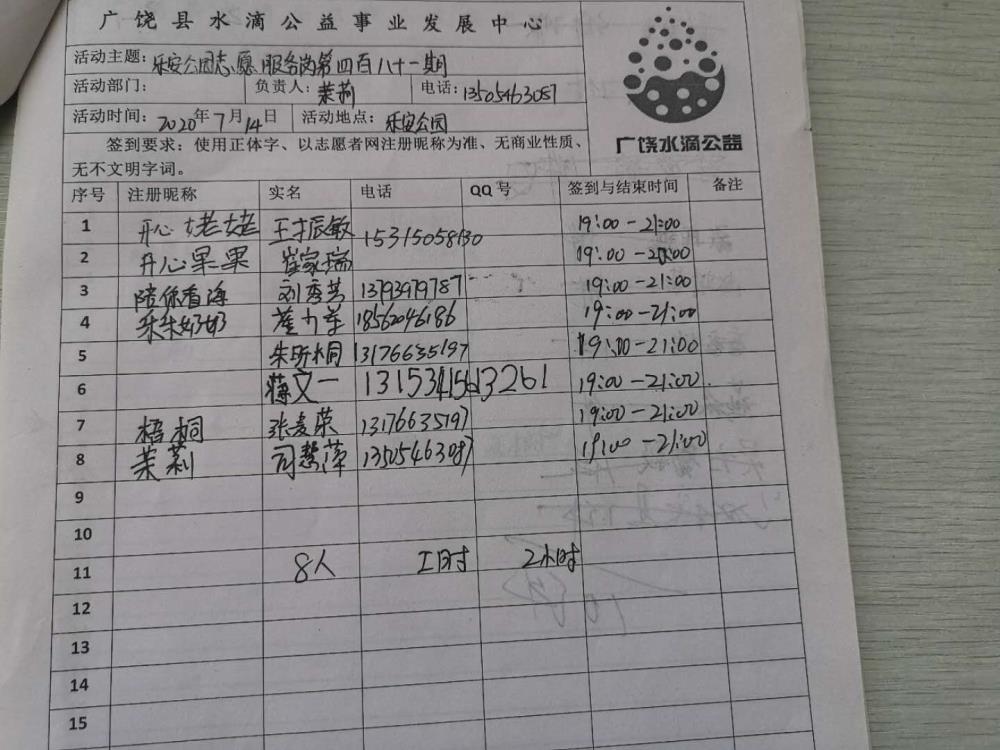 广饶县水滴公益事业发展中心
活动主题: 乐安公园志愿服务岗第四百八十一期
活动部门: 负责人: 茉莉 电话: 13505463087
活动时间: 2020年7月14日 活动地点: 乐安公园
签到要求：使用正体字、以志愿者网注册昵称为准、无商业性质、
无不文明字词。
广饶水滴公益
序号 注册昵称 实名 电话 QQ号 签到与结束时间 备注
1 开心姥姥 王振敏 15315058130 19:00-21:00
2 开心果果 崔家瑞 19:00-21:00
3 陪你看海 刘秀芳 13793979787 19:00-21:00
4 乐乐奶奶 18562046186 19:00-21:00
5 朱昕桐 13176635197 19:00-21:00
6 蒋文一 19:00-21:00
7 梧桐 张麦荣 13176635197 19:00-21:00
8 茉莉 司慧萍 13505463087 19:00-21:00
9
10
11 8人 工时 2小时
12
13
14
15